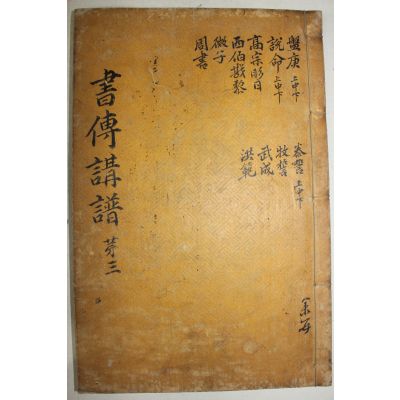 書傳講譜 第三
盤庚 上中下
說命 上中下
高宗肜日
西伯戡黎
微子
周書
泰誓 上中下
牧誓
武成
洪範